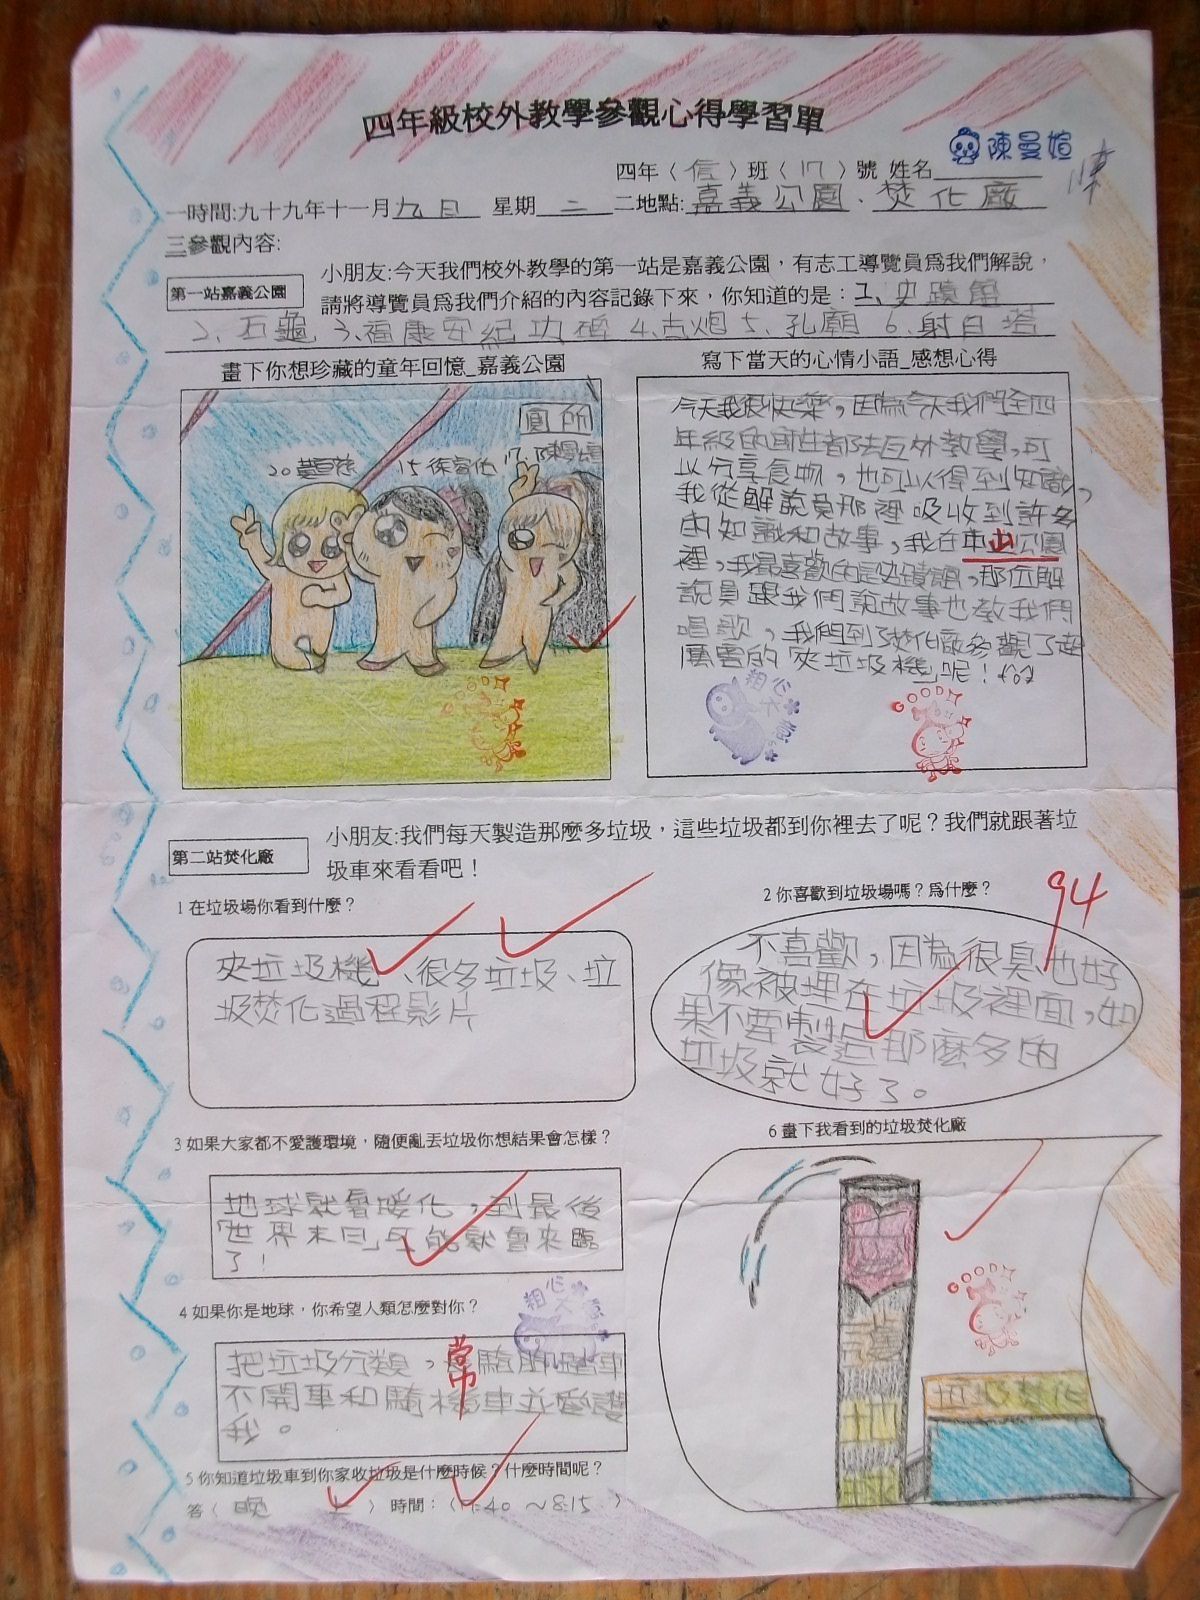 四年級校外教學參觀心得學習單
陳曼媗
四年（信）班（17）號 姓名
一時間:九十九年十一月九日 星期二 二地點:嘉義公園、焚化廠
三參觀內容:
第一站嘉義公園
小朋友:今天我們校外教學的第一站是嘉義公園，有志工導覽員為我們解說，
請將導覽員為我們介紹的內容記錄下來，你知道的是：1、史蹟館
2、石龜 3、福康安紀功碑 4、古炮 5、孔廟 6、射日塔
畫下你想珍藏的童年回憶_嘉義公園
廁所
20 15 17
寫下當天的心情小語_感想心得
今天我很快樂，因為今天我們全四
年級的師生都去戶外教學，可
以分享食物，也可以得到知識，
我從解說員那裡吸收到許多
的知識和故事，我在中山公園
裡，我最喜歡的是史蹟館，那位解
說員跟我們說故事也教我們
唱歌，我們到了焚化廠參觀了超
厲害的「夾垃圾機」呢！
粗心大意
GOOD
GOOD
第二站焚化廠
小朋友:我們每天製造那麼多垃圾，這些垃圾都到你裡去了呢？我們就跟著垃
圾車來看看吧！
94
1 在垃圾場你看到什麼？
夾垃圾機、很多垃圾、垃
圾焚化過程影片
2 你喜歡到垃圾場嗎？為什麼？
不喜歡，因為很臭也好
像被埋在垃圾裡面，如
果不要製造那麼多的
垃圾就好了。
3 如果大家都不愛護環境，隨便亂丟垃圾你想結果會怎樣？
地球就會暖化，到最後
「世界末日」可能就會來臨
了！
4 如果你是地球，你希望人類怎麼對你？
粗心大意
把垃圾分類，常騎腳踏車
不開車和騎機車並愛護
我。
5 你知道垃圾車到你家收垃圾是什麼時候？什麼時間呢？
答（晚上）時間：（ :40 ～8:15 ）
6 畫下我看到的垃圾焚化廠
GOOD
嘉義
垃圾焚化